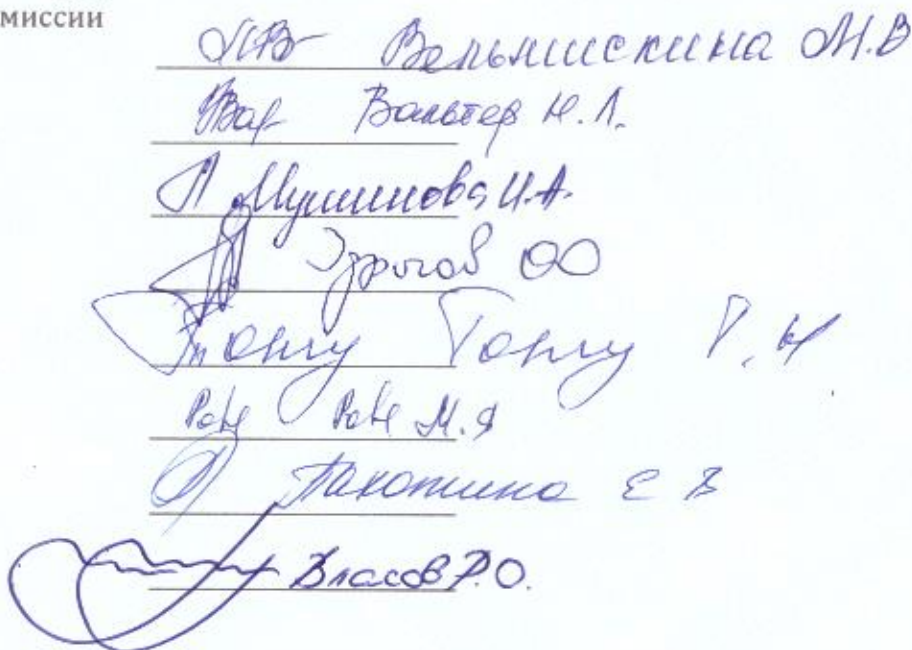 миссии
Вельмискина М.В
Вальтер Н.Л.
Мушинова И.А.
ОО
Гончу Г. Н
Рове М.Я
Пахотина Е В
Власов Р.О.